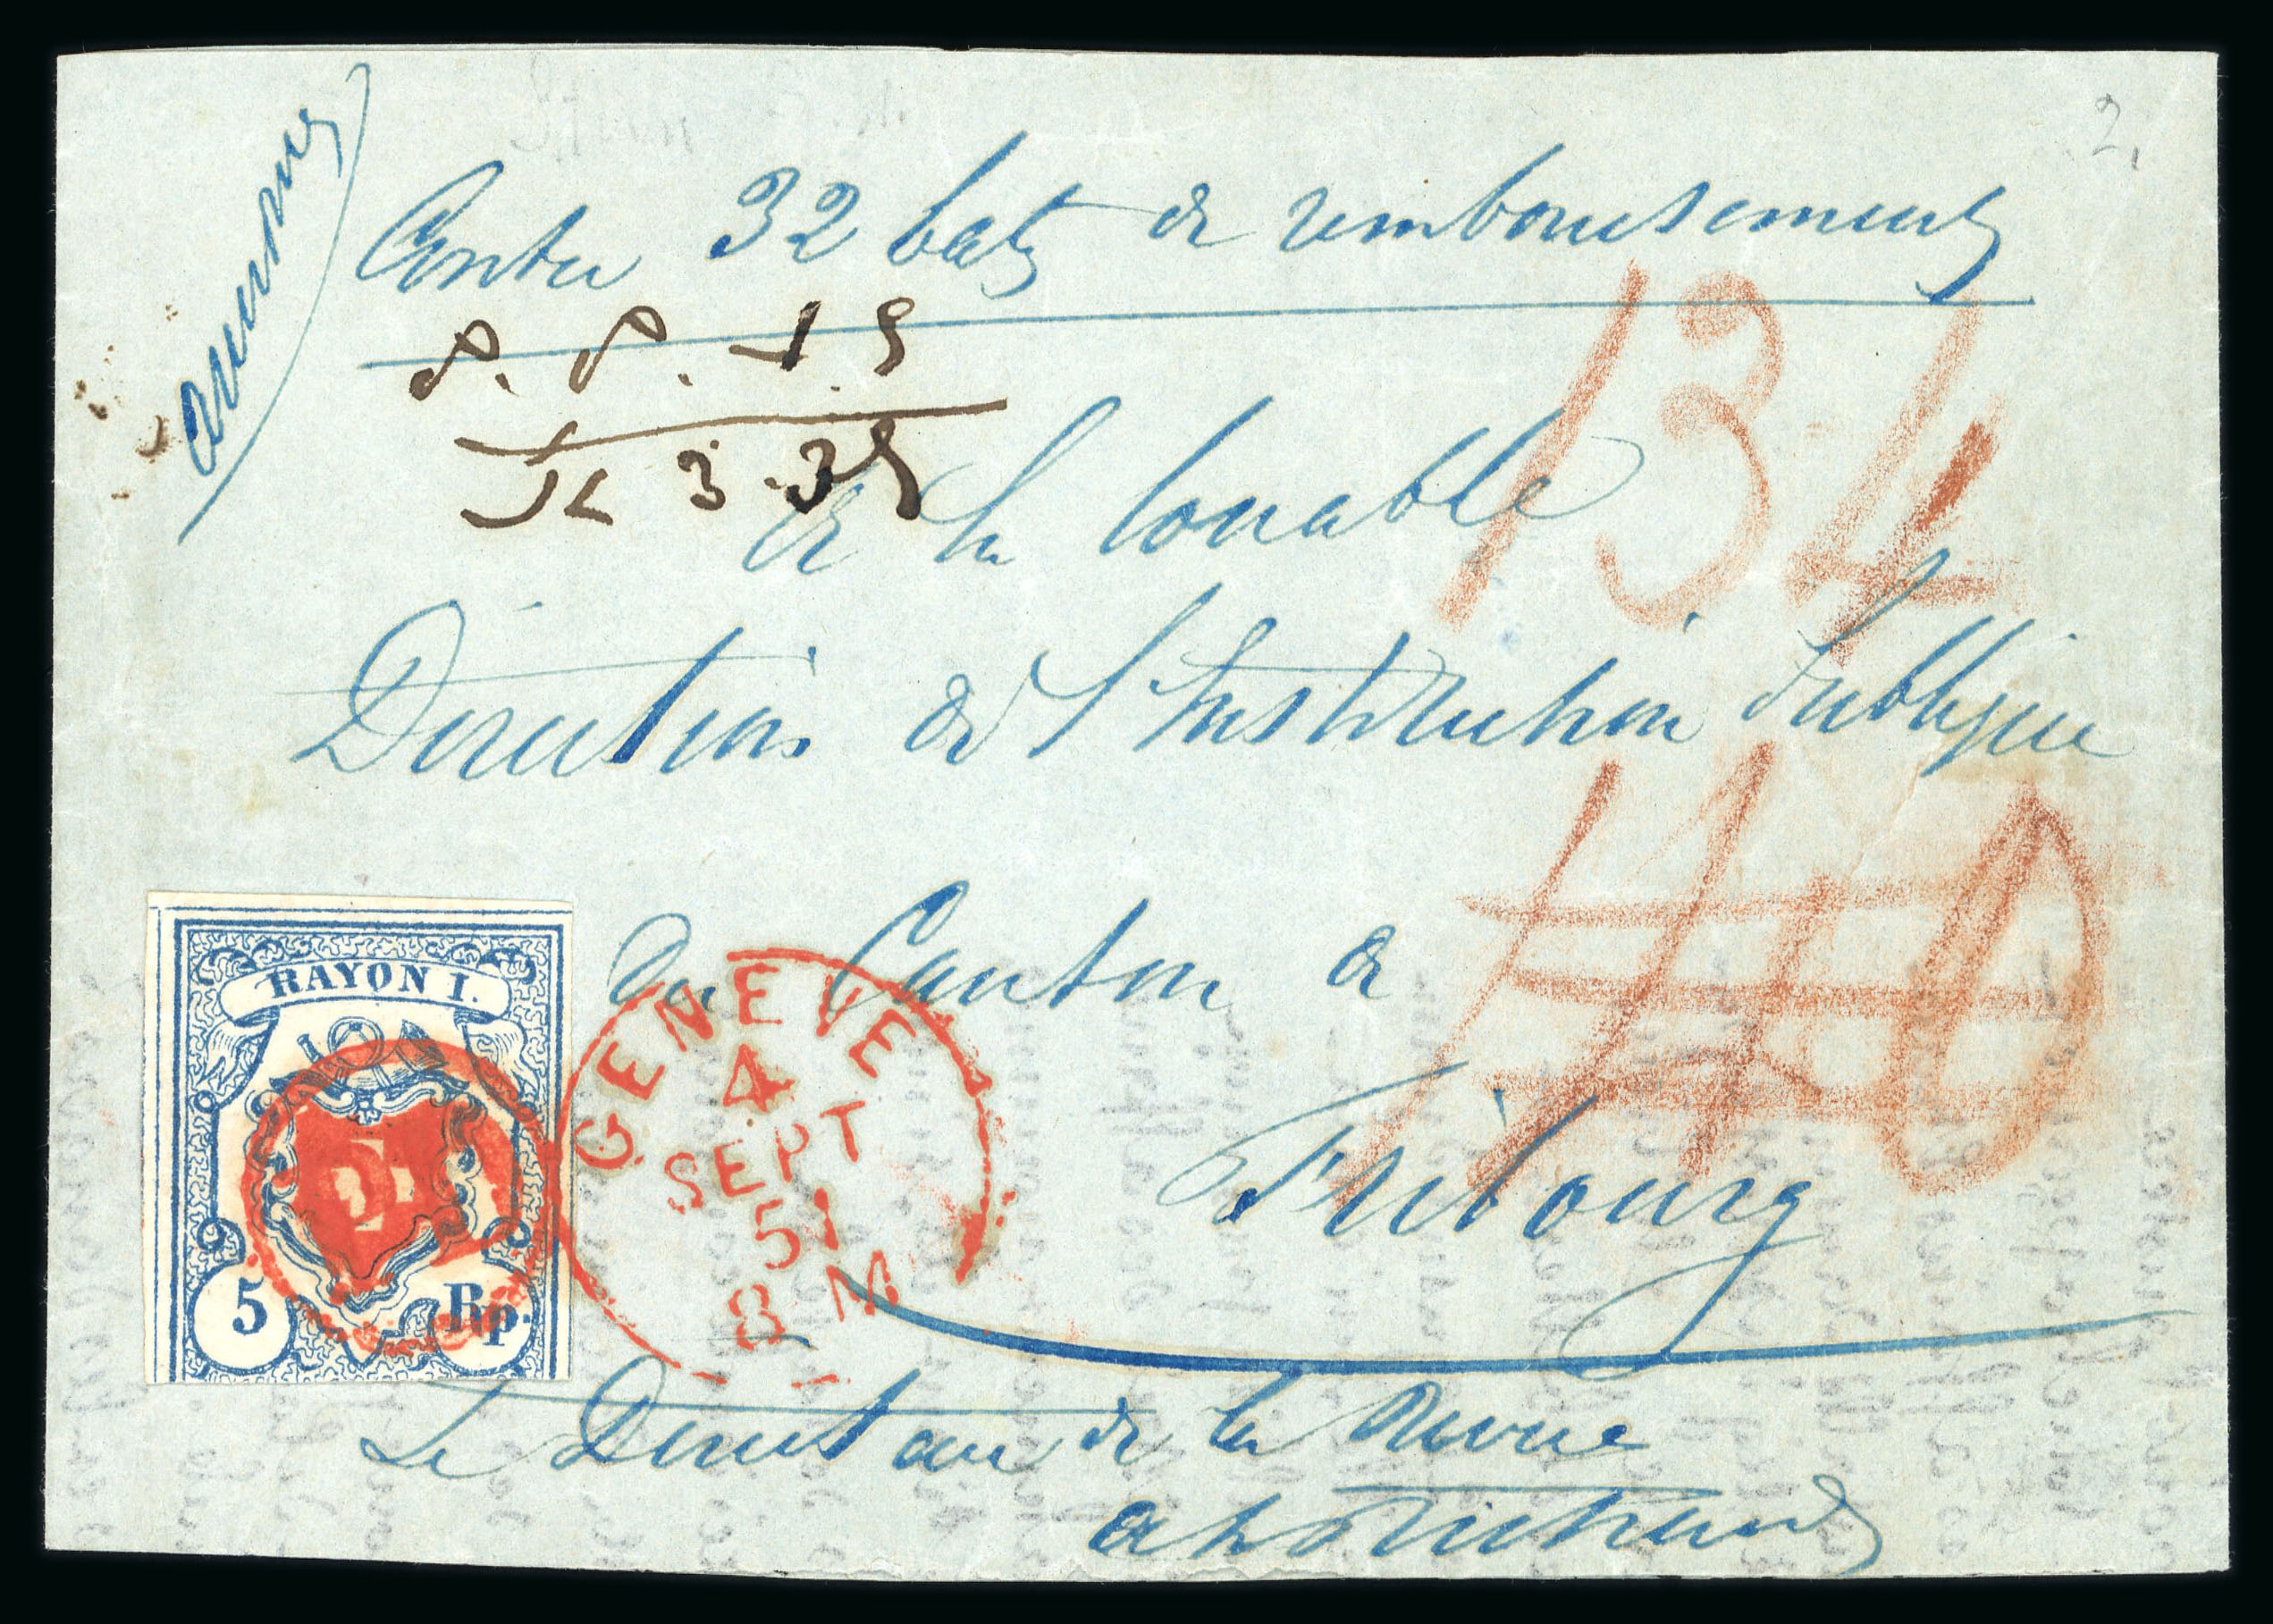 2,
Contre 32 batz de remboursement
P. P. 15
3.35
134
A la louable
Direction de l'Instruction Publique
du Canton de
Fribourg
RAYON I.
5 Rp.
GENEVE
4
SEPT
51
8 M
Le Directeur de la Revue